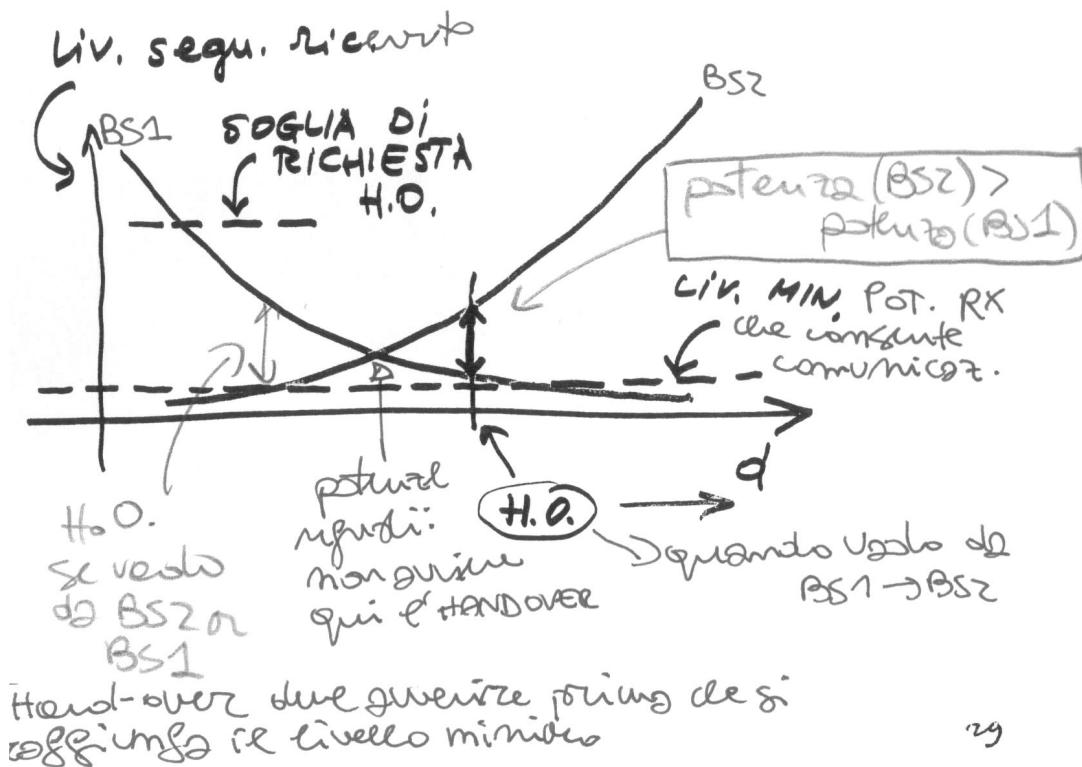 Liv. segn. ricevuto
BS1
BS2
SOGLIA DI
RICHIESTA
H.O.
potenza (BS2) >
potenza (BS1)
LIV. MIN. POT. RX
che consente
comunicaz.
d
H.O.
se vado
da BS2 a
BS1
potenze
uguali:
non avviene
qui l'HANDOVER
H.O.
quando vado da
BS1 → BS2
Hand-over deve avvenire prima che si
raggiunga il livello minimo
29